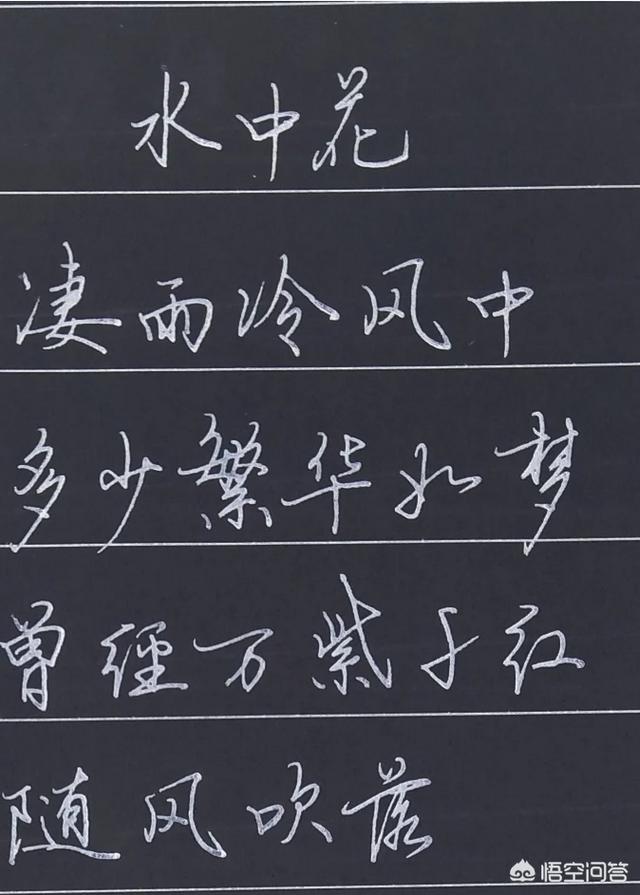 水中花
凄雨冷风中
多少繁华如梦
曾經万紫千红
随风吹落
悟空问答